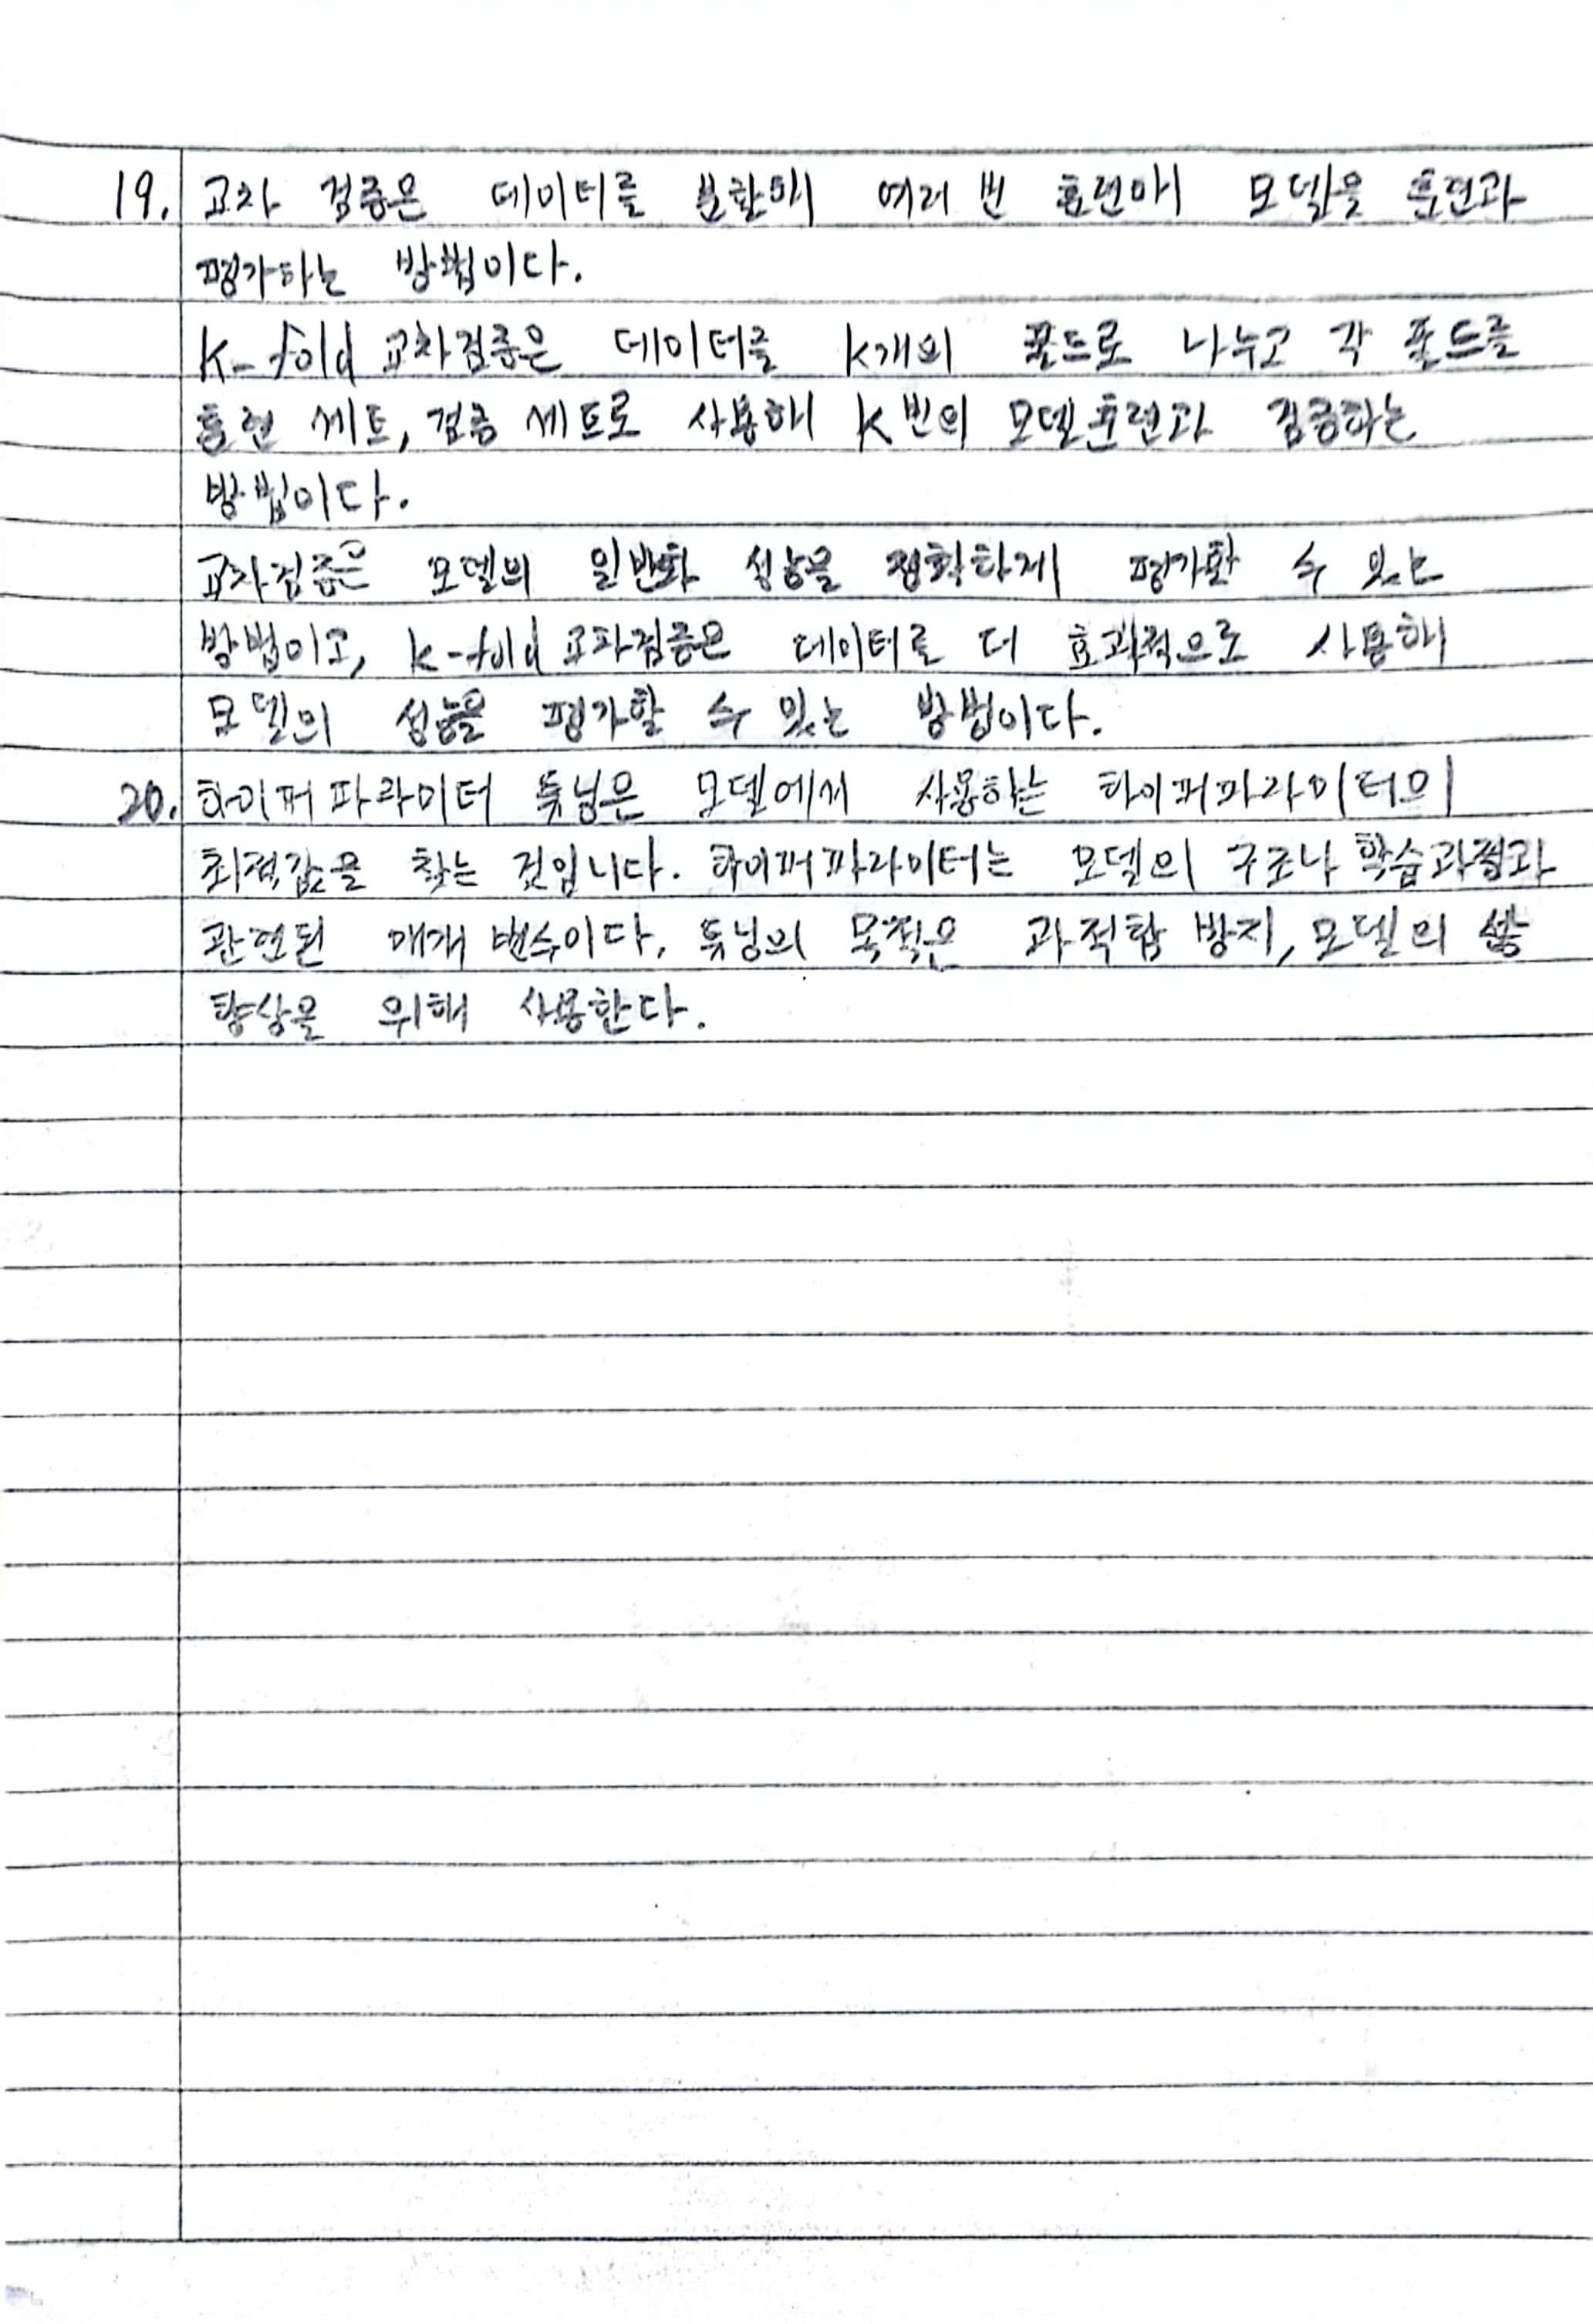 19. 교차 검증은 데이터를 분할해 여러 번 훈련해 모델을 훈련과
평가하는 방법이다.
K-fold 교차검증은 데이터를 K개의 폴드로 나누고 각 폴드를
훈련 세트, 검증 세트로 사용해 K번의 모델훈련과 검증하는
방법이다.
교차검증은 모델의 일반화 성능을 정확하게 평가할 수 있는
방법이고, K-fold 교차검증은 데이터를 더 효과적으로 사용해
모델의 성능을 평가할 수 있는 방법이다.
20. 하이퍼파라미터 튜닝은 모델에서 사용하는 하이퍼파라미터의
최적값을 찾는 것입니다. 하이퍼파라미터는 모델의 구조나 학습과정과
관련된 매개 변수이다. 튜닝의 목적은 과적합 방지, 모델의
향상을 위해 사용한다.